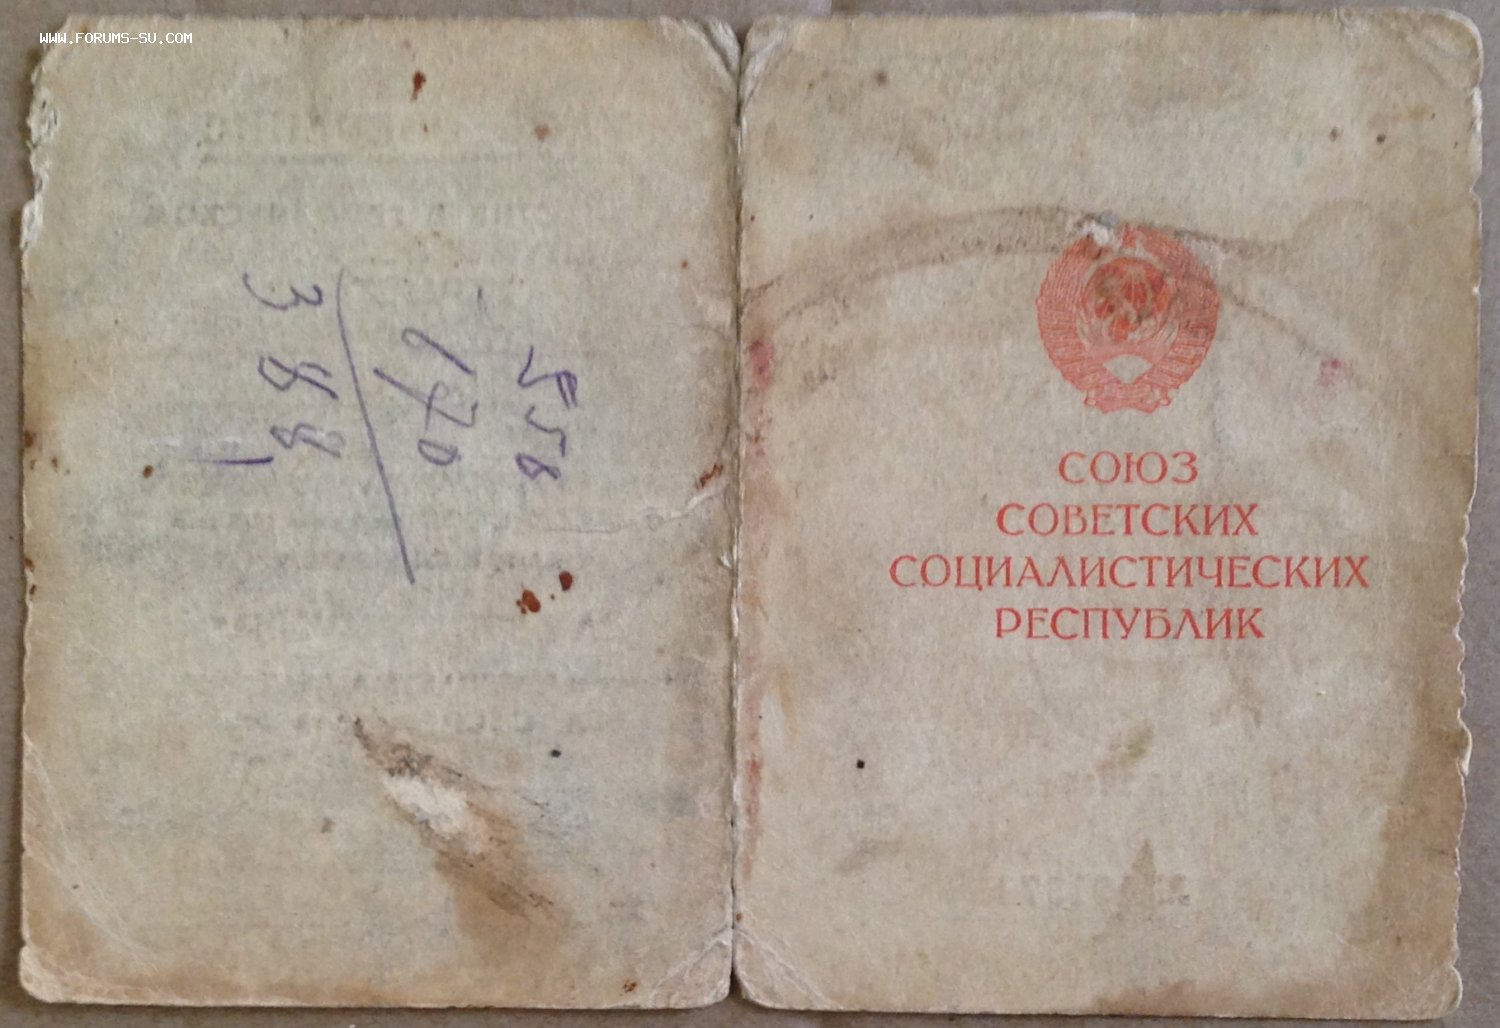 WWW.FORUMS-SU.COM
558
170
388
СОЮЗ
СОВЕТСКИХ
СОЦИАЛИСТИЧЕСКИХ
РЕСПУБЛИК